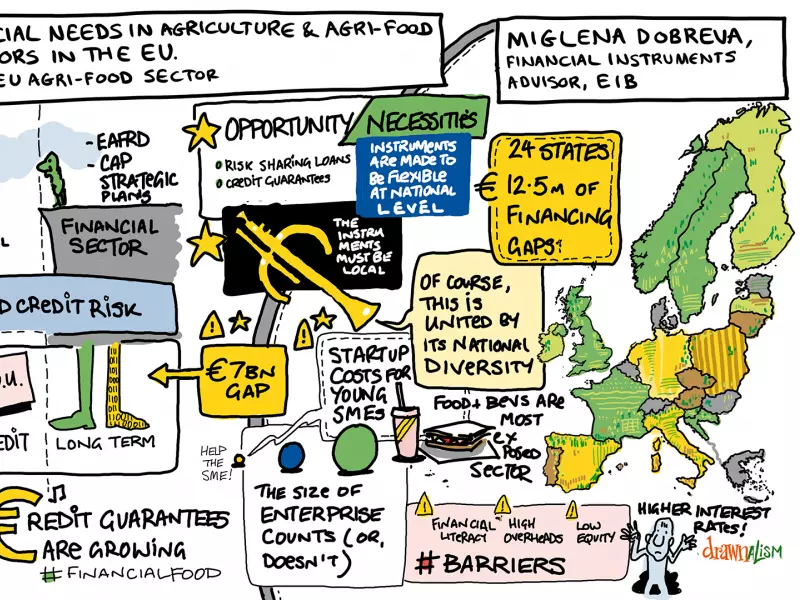 CIAL NEEDS IN AGRICULTURE & AGRI-FOOD
ORS IN THE EU.
EU AGRI-FOOD SECTOR
MIGLENA DOBREVA,
FINANCIAL INSTRUMENTS
ADVISOR, EIB
- EAFRD
- CAP
STRATEGIC
PLANS
FINANCIAL
SECTOR
D CREDIT RISK
OPPORTUNITY
RISK SHARING LOANS
CREDIT GUARANTEES
NECESSITIES
INSTRUMENTS
ARE MADE TO
BE FLEXIBLE
AT NATIONAL
LEVEL
24 STATES
€ 12.5M OF
FINANCING
GAPS!
THE
INSTRU
MENTS
MUST BE
LOCAL
OF COURSE,
THIS IS
UNITED BY
ITS NATIONAL
DIVERSITY
€7BN
GAP
U.
EDIT
LONG TERM
STARTUP
COSTS FOR
YOUNG
SMES
HELP
THE
SME!
FOOD + BEVS ARE
MOST
EX
POSED
SECTOR
THE SIZE OF
ENTERPRISE
COUNTS (OR,
DOESN'T)
€REDIT GUARANTEES
ARE GROWING
#FINANCIALFOOD
FINANCIAL
LITERACY
HIGH
OVERHEADS
LOW
EQUITY
#BARRIERS
HIGHER INTEREST
RATES!
drawnALISM